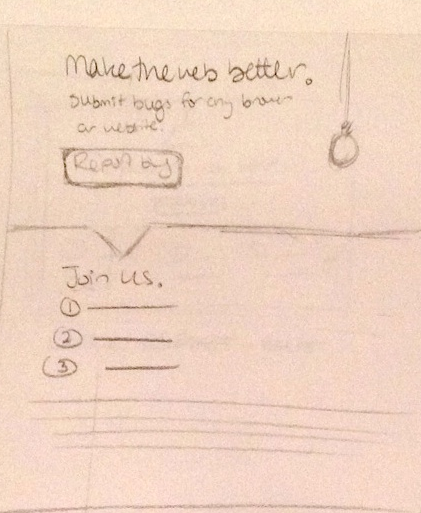 Make the web better.
Submit bugs for any browser
or website.
Report bug
Join us.
1
2
3